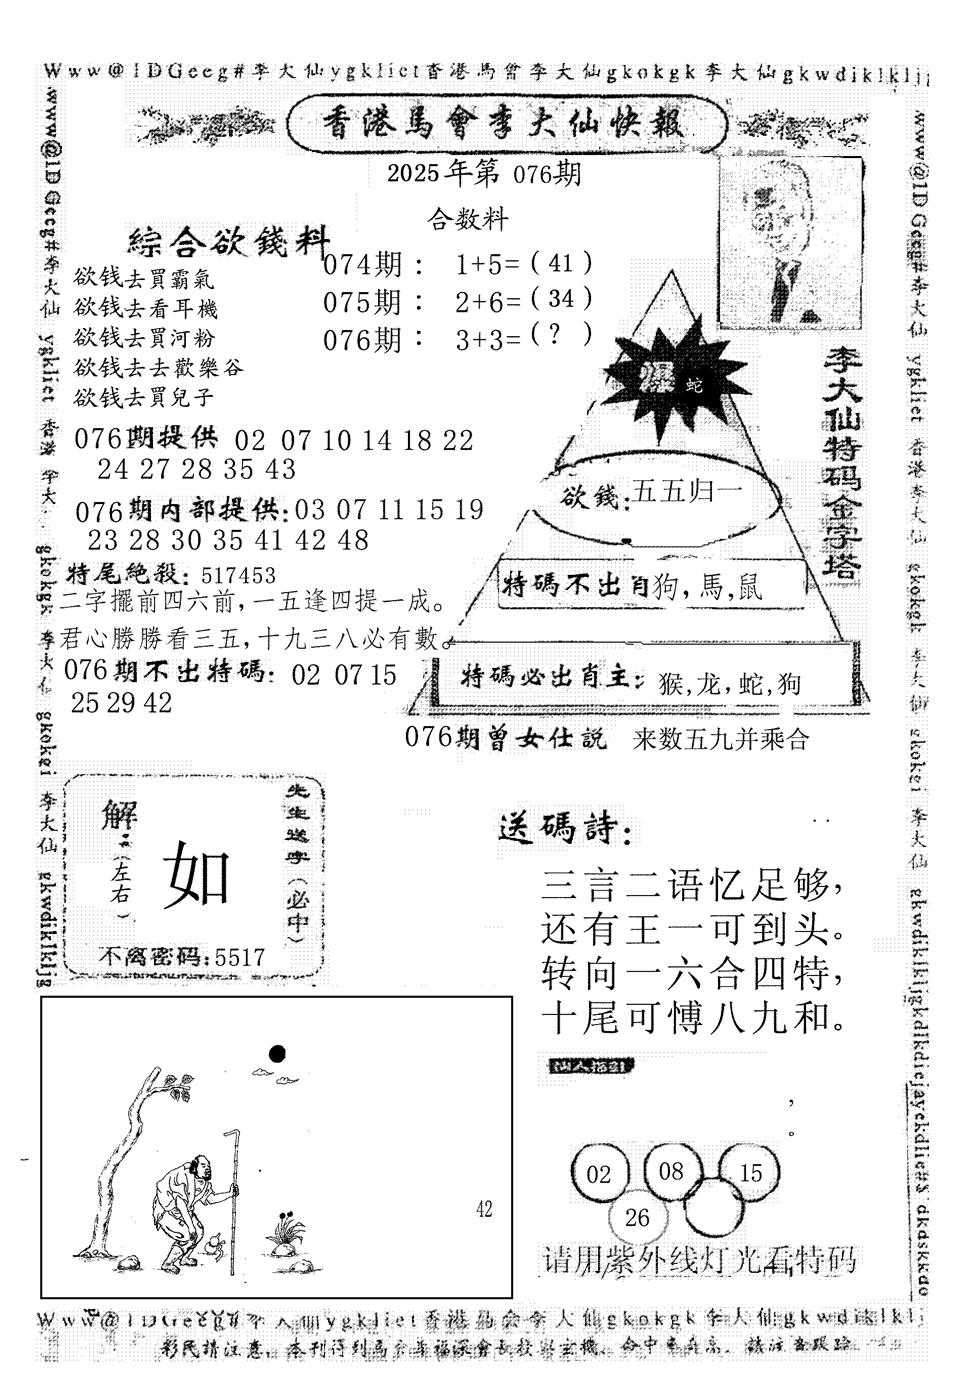 Www@1DGeeg#李大仙ygkliet香港馬會李大仙gkokgk李大仙gkwdiklkljg
香港馬會李大仙快報
2025年第 076期
合数料
綜合欲錢料
欲钱去買霸氣
欲钱去看耳機
欲钱去買河粉
欲钱去去歡樂谷
欲钱去買兒子
074期： 1+5=(41)
075期： 2+6=(34)
076期： 3+3=(?)
爆 蛇
李大仙特码金字塔
076期提供 02 07 10 14 18 22
24 27 28 35 43
欲錢:五五归一
076期内部提供:03 07 11 15 19
23 28 30 35 41 42 48
特尾絶殺: 517453
特碼不出肖狗,馬,鼠
二字擺前四六前,一五逢四提一成。
君心勝勝看三五,十九三八必有數。
076期不出特碼: 02 07 15
25 29 42
特碼必出肖主: 猴,龙,蛇,狗
076期曾女仕説 来数五九并乘合
解:(左右)
如
先生送字(必中)
不离密码:5517
送碼詩:
三言二语忆足够,
还有王一可到头。
转向一六合四特,
十尾可愽八九和。
42
,
。
02 08 15
26
请用紫外线灯光看特码
www@1DGeeg#李大仙 ygkliet 香港 李大仙 gkokgk 李大仙 gkokei 李大仙 gkwdiklkljg
www@1DGeeg#李大仙 ygkliet 香港李大仙 gkokgk 李大仙 gkokei 李大仙 gkwdiklkljgkdlkdiejayekdlie#$ dkdskkdo
Www@1DGeeg#李大仙ygkliet香港馬会李大仙gkokgk李大仙gkwdiklklj
彩民請注意,本刊得到馬会